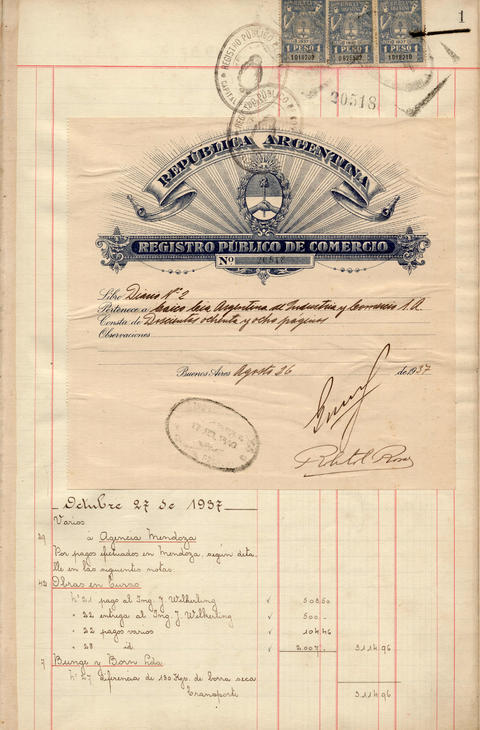 1
1 PESO 1 PESO 1 PESO
REGISTRO PÚBLICO
20518
REPÚBLICA ARGENTINA
REGISTRO PÚBLICO DE COMERCIO
Nº 20518
Libro Diario Nº 2
Pertenece a Argentina de Industria y Comercio S.A.
Consta de Doscientos ochenta y ocho paginas
Observaciones
Buenos Aires Agosto 26 de 1937
Octubre 27 de 1937
Varios
29 a Agencia Mendoza
Por pagos efectuados en Mendoza, según deta
lle en las siguientes notas.
43 Obras en Curso
Nº 21 pago al Ing. J. Welkerling √ 503.50
" 22 entrega al Ing J. Welkerling √ 500.-
" 22 pagos varios √ 104.46
" 28 id √ 2.007.- 3.114.96
7 Bunge y Born Ltda
Nº 27 Diferencia de 130 Kgs. de borra seca
Transporte 3.114.96